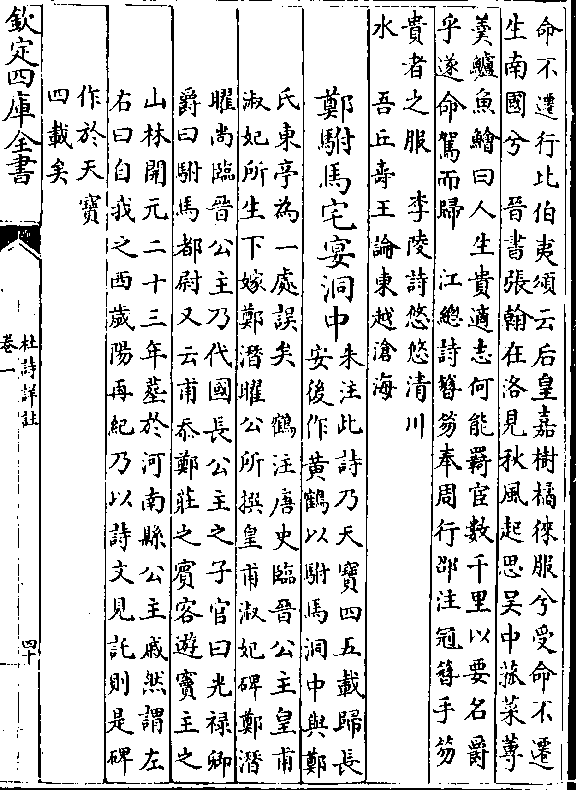 命不遷行比伯夷頌云后皇嘉樹橘徠服兮受命不遷
生南國兮　晉書張翰在洛見秋風起思吳中菰菜蓴
羮鱸魚鱠曰人生貴適志何能羇宦數千里以要名爵
乎遂命駕而歸　江總詩簪笏奉周行邵注冠簪手笏
貴者之服　李陵詩悠悠清川
水　吾丘壽王論東越滄海
鄭駙馬宅宴洞中
朱注此詩乃天寶四五載歸長
安後作黃鶴以駙馬洞中與鄭
氏東亭為一處誤矣　鶴注唐史臨晉公主皇甫
淑妃所生下嫁鄭潛曜公所撰皇甫淑妃碑鄭潛
曜尚臨晉公主乃代國長公主之子官曰光禄卿
爵曰駙馬都尉又云甫忝鄭莊之賓客遊竇主之
山林開元二十三年墓於河南縣公主戚然謂左
右曰自我之西歲陽再紀乃以詩文見託則是碑
作於天寶
四載矣
欽定四庫全書
杜詩詳註
卷一
四十